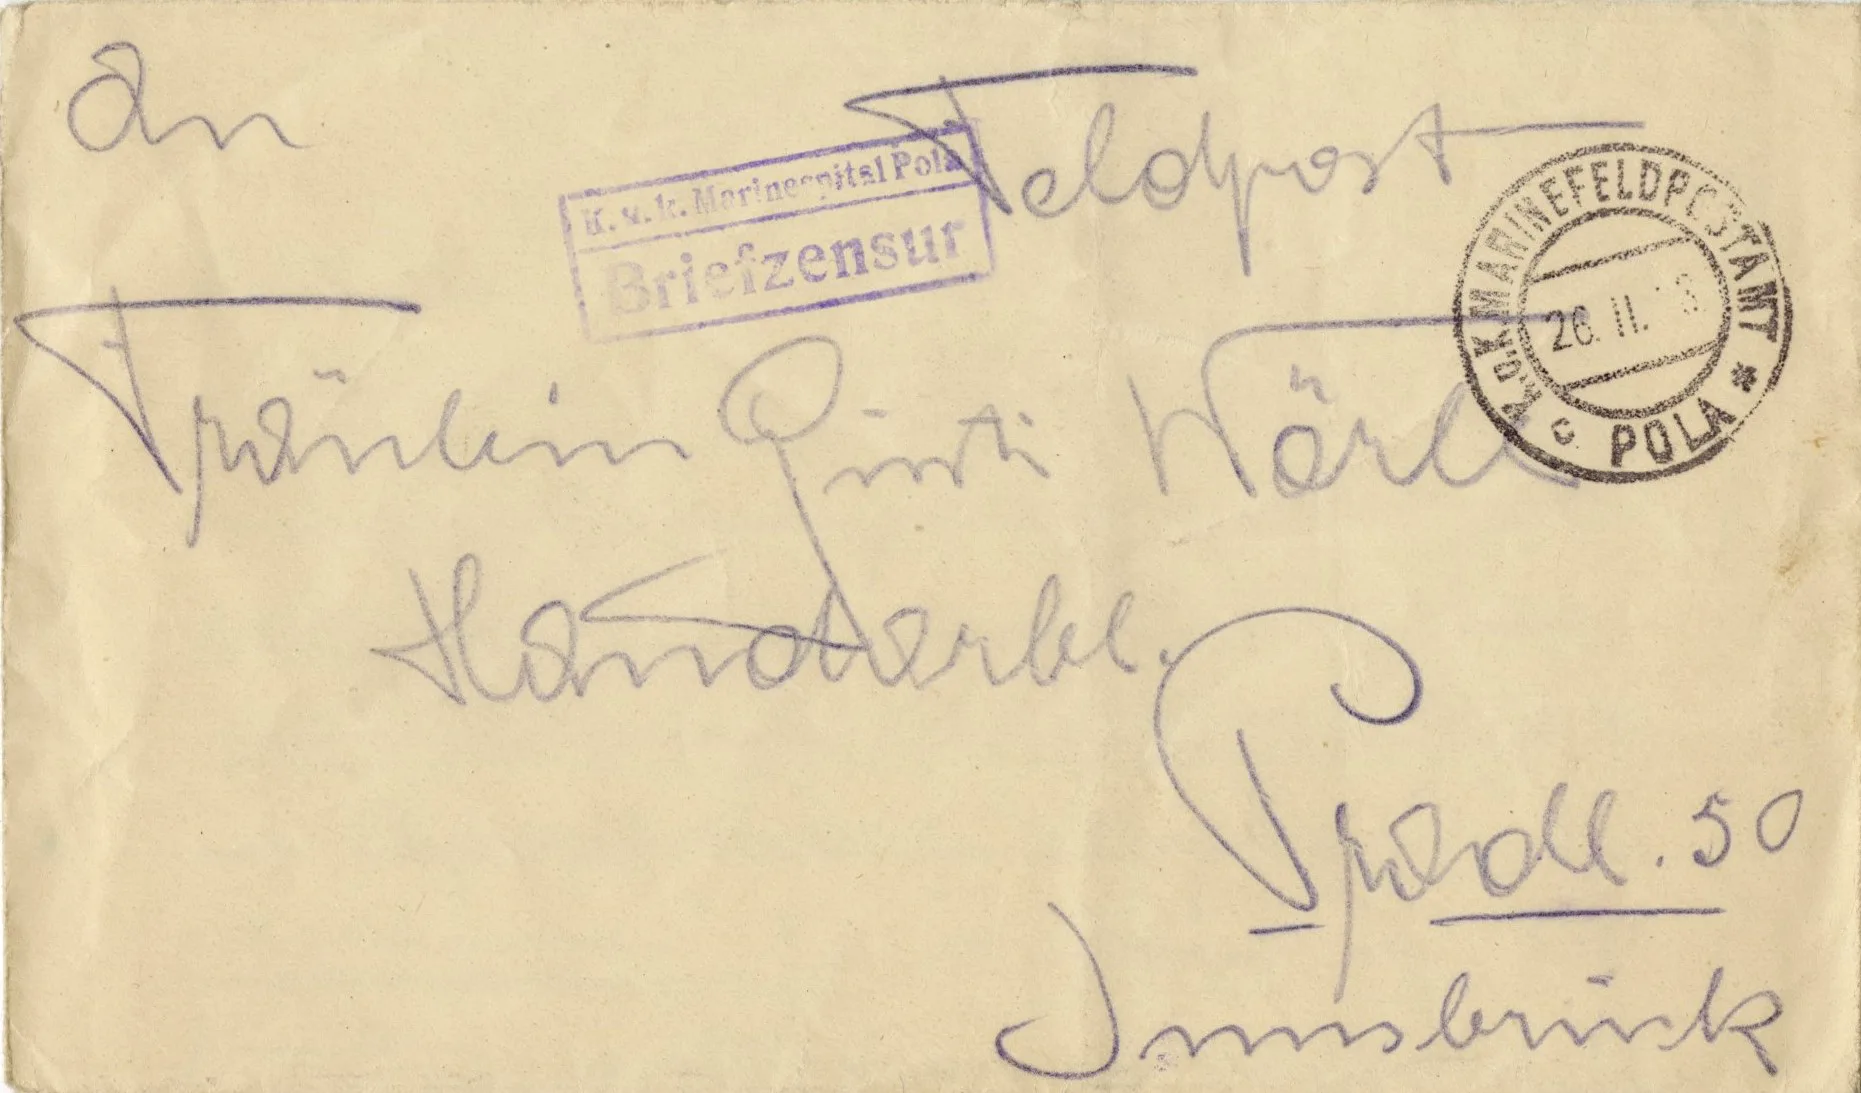 An
Feldpost
K. u. k. Marinespital Pola
Briefzensur
K.U.K. MARINEFELDPOSTAMT
26. II. 18
c POLA *
Fräulein Pinti Wörle
Handarbl.
Pradl. 50
Innsbruck